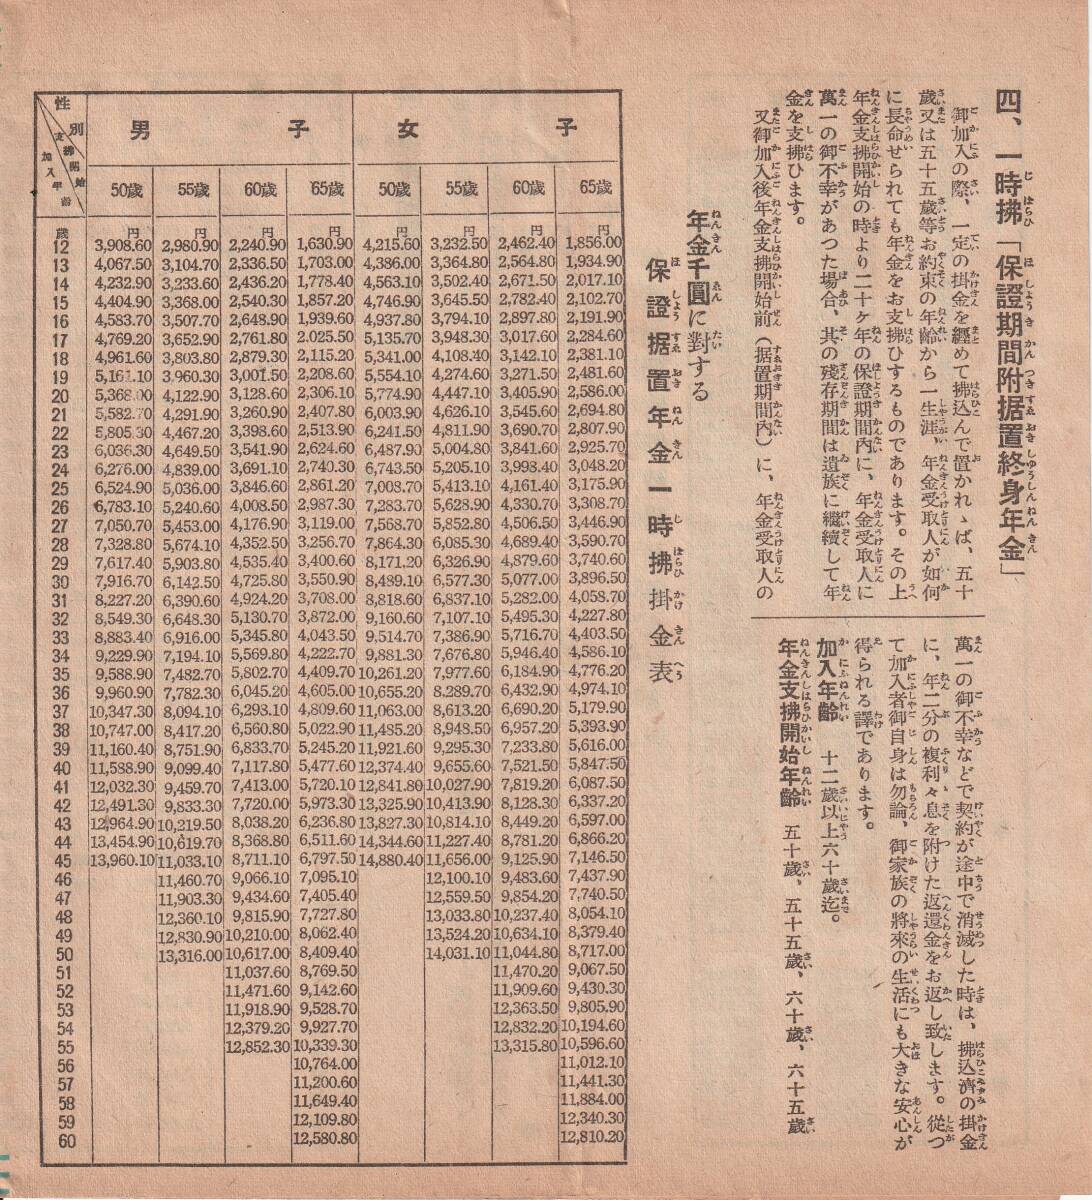 四、一時拂「保證期間附据置終身年金」
御加入の際、一定の掛金を纒めて拂込んで置かれゝば、五十
歲又は五十五歲等お約束の年齡から一生涯、年金受取人が如何
に長命せられても年金をお支拂ひするものであります。その上
年金支拂開始の時より二十ヶ年の保證期間內に、年金受取人に
萬一の御不幸があつた場合、其の殘存期間は遺族に繼續して年
金を支拂ひます。
又御加入後年金支拂開始前(据置期間內)に、年金受取人の
萬一の御不幸などで契約が途中で消滅した時は、拂込濟の掛金
に、年二分の複利々息を附けた返還金をお返し致します。從つ
て加入者御自身は勿論、御家族の將來の生活にも大きな安心が
得られる譯であります。
加入年齡 十二歲以上六十歲迄。
年金支拂開始年齡 五十歲、五十五歲、六十歲、六十五歲
年金千圓に對する
保證据置年金一時拂掛金表
性別 支拂開始 加入年齡 男子 女子
50歲 55歲 60歲 65歲 50歲 55歲 60歲 65歲
歲 円 円 円 円 円 円 円 円
12 3,908.60 2,980.90 2,240.90 1,630.90 4,215.60 3,232.50 2,462.40 1,856.00
13 4,067.50 3,104.70 2,336.50 1,703.00 4,386.00 3,364.80 2,564.80 1,934.90
14 4,232.90 3,233.60 2,436.20 1,778.40 4,563.10 3,502.40 2,671.50 2,017.10
15 4,404.90 3,368.00 2,540.30 1,857.20 4,746.90 3,645.50 2,782.40 2,102.70
16 4,583.70 3,507.70 2,648.90 1,939.60 4,937.80 3,794.10 2,897.80 2,191.90
17 4,769.20 3,652.90 2,761.80 2,025.50 5,135.70 3,948.30 3,017.60 2,284.60
18 4,961.60 3,803.80 2,879.30 2,115.20 5,341.00 4,108.40 3,142.10 2,381.10
19 5,161.10 3,960.30 3,001.50 2,208.60 5,554.10 4,274.60 3,271.50 2,481.60
20 5,368.00 4,122.90 3,128.60 2,306.10 5,774.90 4,447.10 3,405.90 2,586.00
21 5,582.70 4,291.90 3,260.90 2,407.80 6,003.90 4,626.10 3,545.60 2,694.80
22 5,805.30 4,467.20 3,398.60 2,513.90 6,241.50 4,811.90 3,690.70 2,807.90
23 6,036.30 4,649.50 3,541.90 2,624.60 6,487.90 5,004.80 3,841.60 2,925.70
24 6,276.00 4,839.00 3,691.10 2,740.30 6,743.50 5,205.10 3,998.40 3,048.20
25 6,524.90 5,036.00 3,846.60 2,861.20 7,008.70 5,413.10 4,161.40 3,175.90
26 6,783.10 5,240.60 4,008.50 2,987.30 7,283.70 5,628.90 4,330.70 3,308.70
27 7,050.70 5,453.00 4,176.90 3,119.00 7,568.70 5,852.80 4,506.50 3,446.90
28 7,328.80 5,674.10 4,352.50 3,256.70 7,864.30 6,085.30 4,689.40 3,590.70
29 7,617.40 5,903.80 4,535.40 3,400.60 8,171.20 6,326.90 4,879.60 3,740.60
30 7,916.70 6,142.50 4,725.80 3,550.90 8,489.10 6,577.30 5,077.00 3,896.50
31 8,227.20 6,390.60 4,924.20 3,708.00 8,818.60 6,837.10 5,282.00 4,058.70
32 8,549.30 6,648.30 5,130.70 3,872.00 9,160.60 7,107.10 5,495.30 4,227.80
33 8,883.40 6,916.00 5,345.80 4,043.50 9,514.70 7,386.90 5,716.70 4,403.50
34 9,229.90 7,194.10 5,569.80 4,222.70 9,881.30 7,676.80 5,946.40 4,586.10
35 9,588.90 7,482.70 5,802.70 4,409.70 10,261.20 7,977.60 6,184.90 4,776.20
36 9,960.90 7,782.30 6,045.20 4,605.00 10,655.20 8,289.70 6,432.90 4,974.10
37 10,347.30 8,094.10 6,293.10 4,809.60 11,063.00 8,613.20 6,690.20 5,179.90
38 10,747.00 8,417.20 6,560.80 5,022.90 11,485.20 8,948.50 6,957.20 5,393.90
39 11,160.40 8,751.90 6,833.70 5,245.20 11,921.60 9,295.30 7,233.80 5,616.00
40 11,588.90 9,099.40 7,117.80 5,477.60 12,374.40 9,655.60 7,521.50 5,847.50
41 12,032.30 9,459.70 7,413.00 5,720.10 12,841.80 10,027.90 7,819.20 6,087.50
42 12,491.30 9,833.30 7,720.00 5,973.30 13,325.90 10,413.90 8,128.30 6,337.20
43 12,964.90 10,219.50 8,038.20 6,236.80 13,827.30 10,814.10 8,449.20 6,597.00
44 13,454.90 10,619.70 8,368.80 6,511.60 14,344.60 11,227.40 8,781.20 6,866.20
45 13,960.10 11,033.10 8,711.10 6,797.50 14,880.40 11,656.00 9,125.90 7,146.50
46 11,460.70 9,066.10 7,095.10 12,100.10 9,483.60 7,437.90
47 11,903.30 9,434.60 7,405.40 12,559.50 9,854.20 7,740.50
48 12,360.10 9,815.90 7,727.80 13,033.80 10,237.40 8,054.10
49 12,830.90 10,210.00 8,062.40 13,524.20 10,634.10 8,379.40
50 13,316.00 10,617.00 8,409.40 14,031.10 11,044.80 8,717.00
51 11,037.60 8,769.50 11,470.20 9,067.50
52 11,471.60 9,142.60 11,909.60 9,430.30
53 11,918.90 9,528.70 12,363.50 9,805.90
54 12,379.20 9,927.70 12,832.20 10,194.60
55 12,852.30 10,339.30 13,315.80 10,596.60
56 10,764.00 11,012.10
57 11,200.60 11,441.30
58 11,649.40 11,884.00
59 12,109.80 12,340.30
60 12,580.80 12,810.20